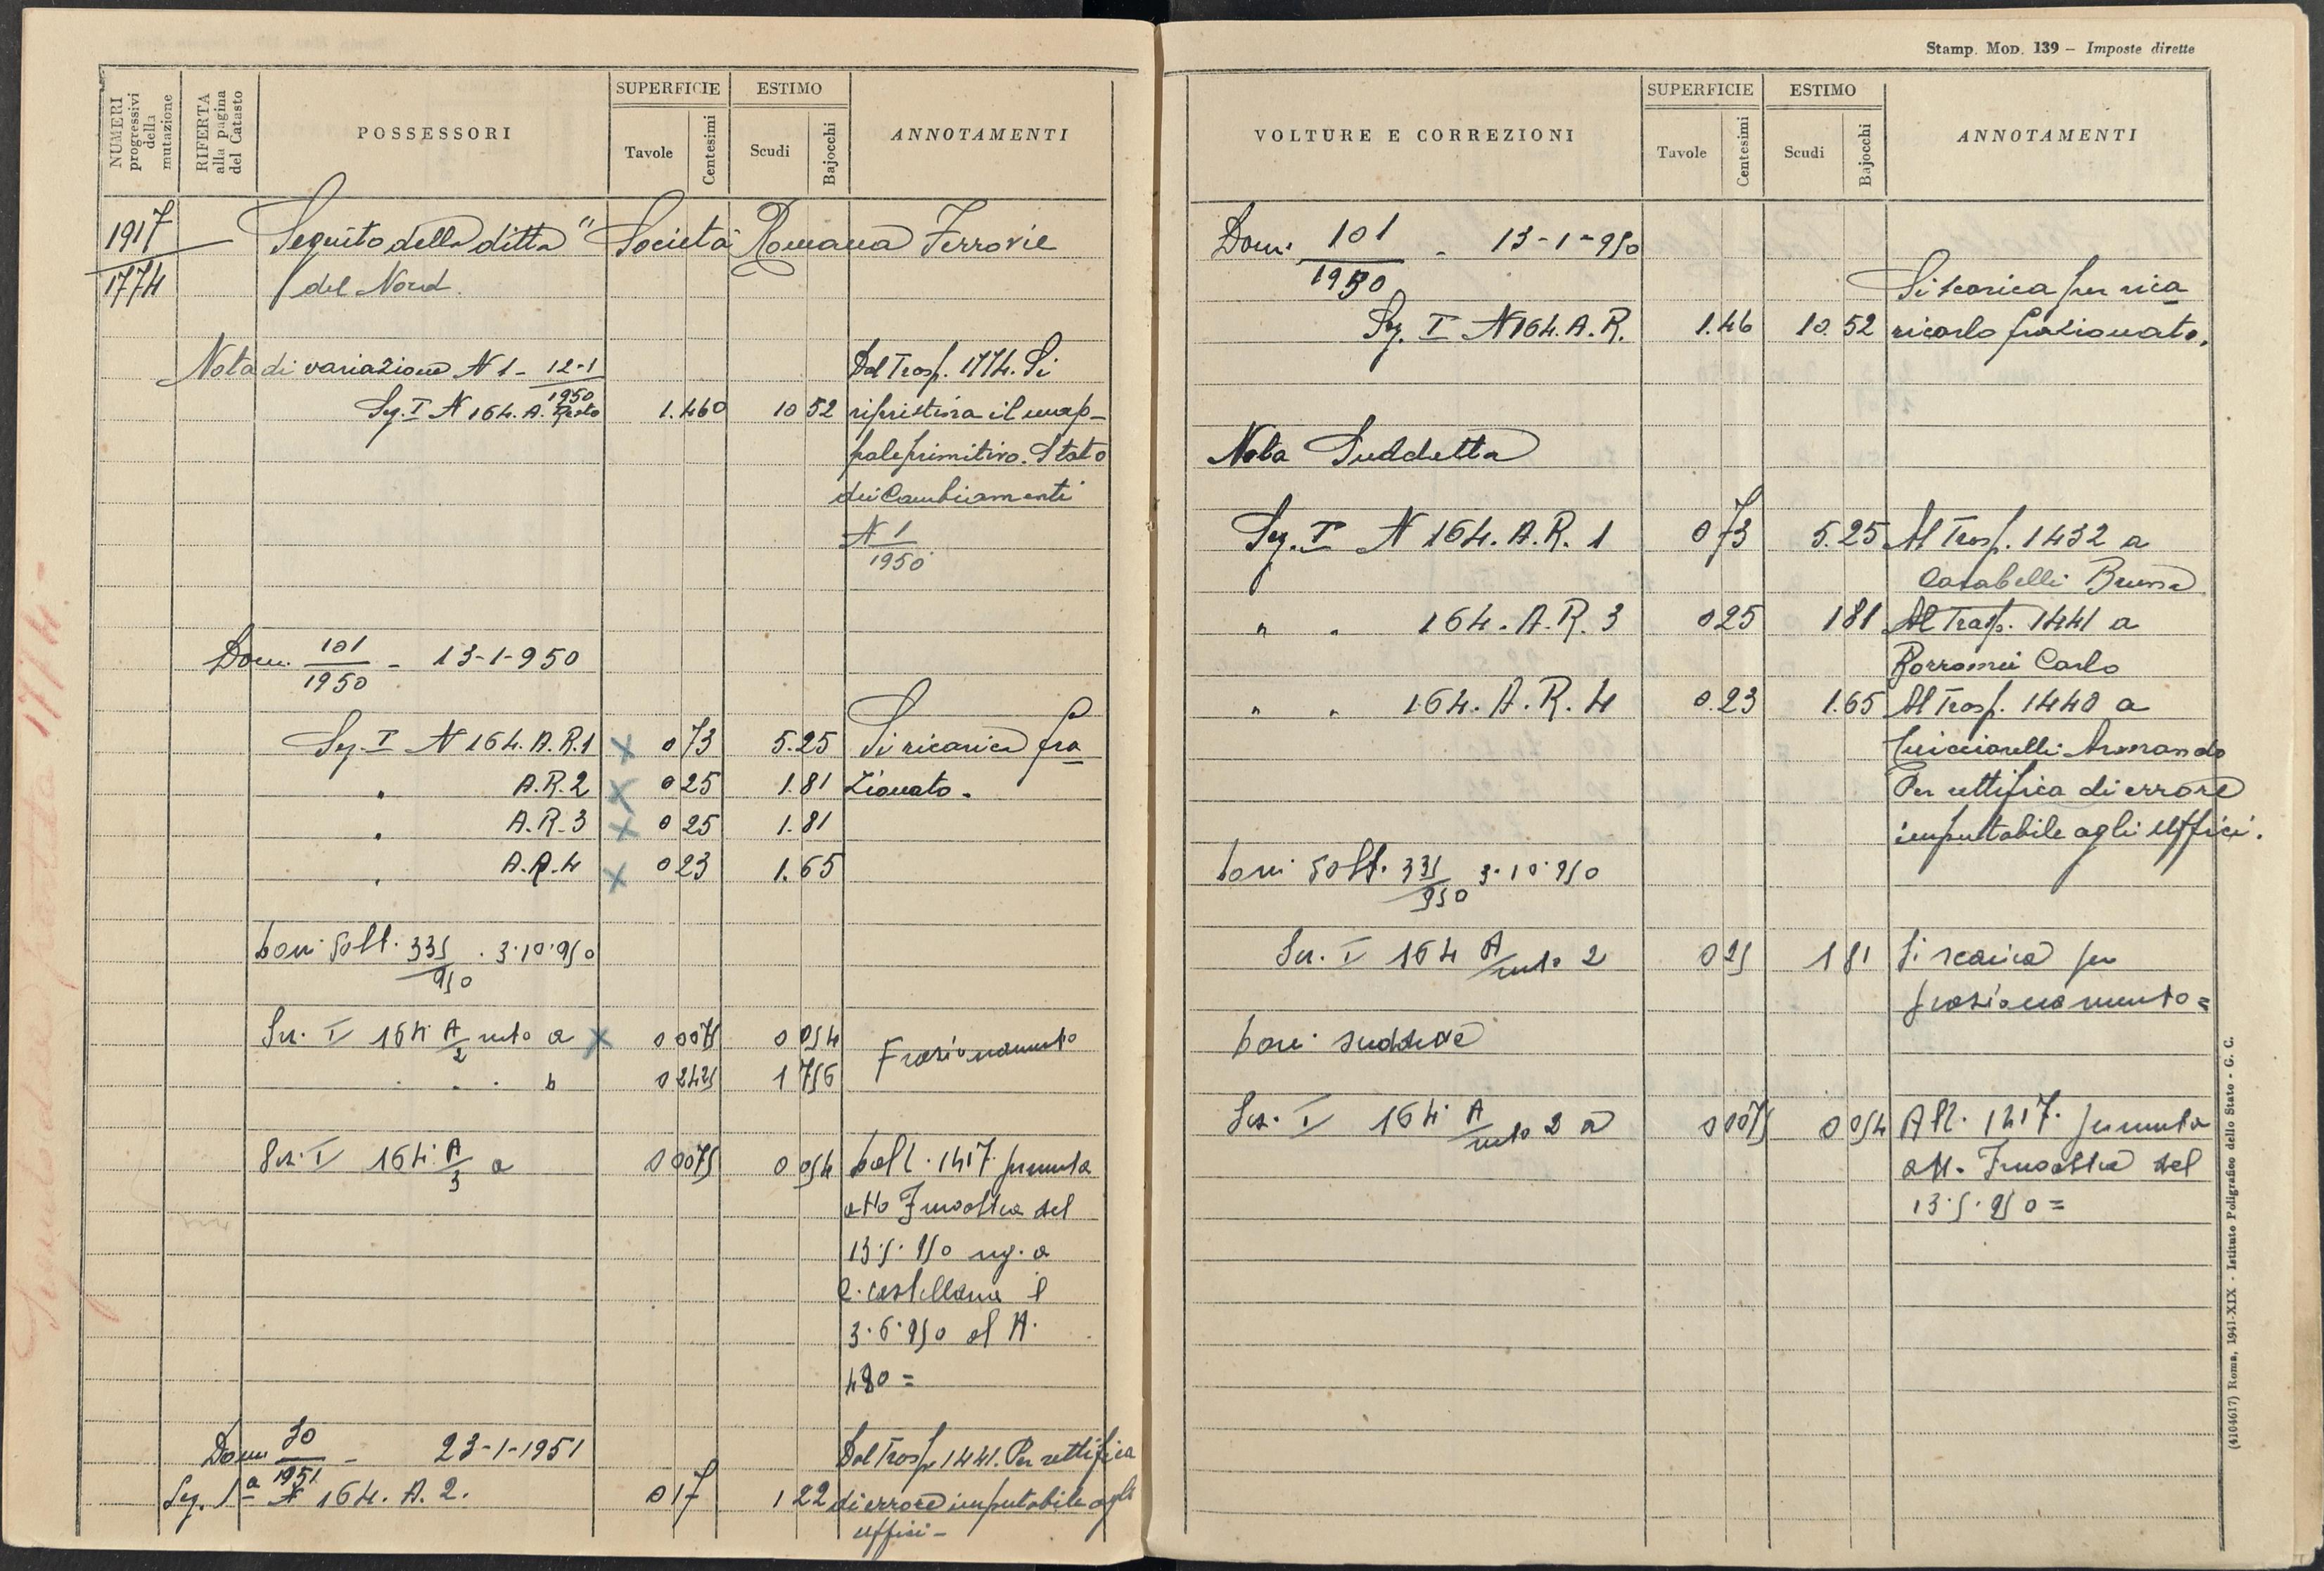 NUMERI progressivi della mutazione
RIFERTA alla pagina del Catasto
POSSESSORI
SUPERFICIE
Tavole
Centesimi
ESTIMO
Scudi
Bajocchi
ANNOTAMENTI
1917
1774
Seguito della ditta "Società Romana Ferrovie
del Nord.
Nota di variazione N 1 - 12-1
1950
Dal Trasp. 1774. Si
Sez. I N 164. A. Resto 1.460 10 52 ripristina il map-
pale primitivo. Stato
dei Cambiamenti
N 1
1950
Dom. 101 - 13-1-950
1950
Sez. I N 164. A.R.1 x 0 73 5.25 Si ricarica fra
" A.R.2 x 0 25 1.81 zionato.
" A.R.3 x 0 25 1.81
" A.R.4 x 0 23 1.65
Dom. Volt. 335 . 3.10.950
950
Sez. I 164 A resto a x 0 0075 0 054 Frazionamento
2
" " b 0 2425 1 756
Sez. I 164 A a 0 0075 0 054 Dall. 1417 permuta
3
atto del
13.5.950 reg. a
C. Castellana il
3.6.950 al N.
480 =
Dom. 30 - 23-1-1951
1951
Dal Trasp. 1441. Per rettifica
Sez. 1a N 164. A. 2. 0 17 1 22 di errore imputabile agli
uffici -
partita 1774 -
Stamp. Mod. 139 – Imposte dirette
VOLTURE E CORREZIONI
SUPERFICIE
Tavole
Centesimi
ESTIMO
Scudi
Bajocchi
ANNOTAMENTI
Dom. 101 - 13-1-950
1950
Si scarica per rica
Sez. I N 164. A.R. 1.46 10.52 ricarlo frazionato.
Nota Suddetta
Sez. I N 164. A.R. 1 0 73 5.25 Al Trasp. 1432 a
Casabelli Bruna
" " 164. A.R. 3 0 25 1 81 Al Trasp. 1441 a
Borromei Carlo
" " 164. A.R. 4 0.23 1.65 Al Trasp. 1440 a
Armando
Per rettifica di errore
imputabile agli Uffici.
Dom. Volt. 335 3.10.950
950
Sez. I 164 A 2 0 25 1 81 Si scarica per
resto
frazionamento =
Dom. suddetta
Sez. I 164 A 2 a 0 0075 0 054 All. 1417. permuta
resto
att. del
13.5.950 =
(4104617) Roma, 1941-XIX - Istituto Poligrafico dello Stato - G. C.